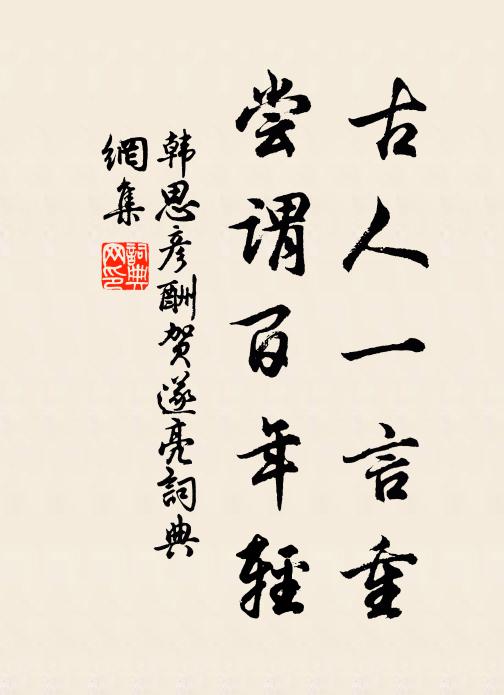 古人一言重
尝谓百年軽
韩思彦酬贺遂亮詞典
網集
詞典
网印